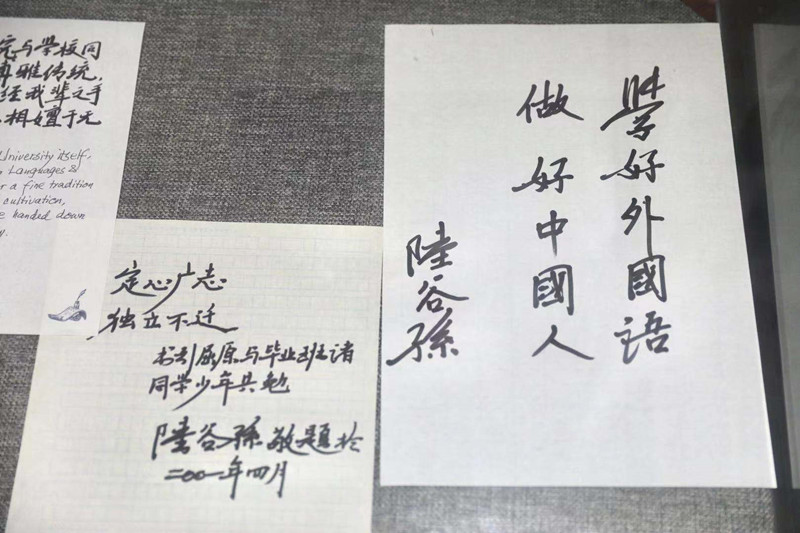 院与学校同
博雅传统,
经我辈之手
相嬗于无
University itself,
Languages &
r a fine tradition
cultivation,
e handed down
y.
定心广志
独立不迁
书引屈原与毕业班诸
同学少年共勉
陸谷孫敬題於
二〇〇一年四月
學好外國語
做好中國人
陸谷孫